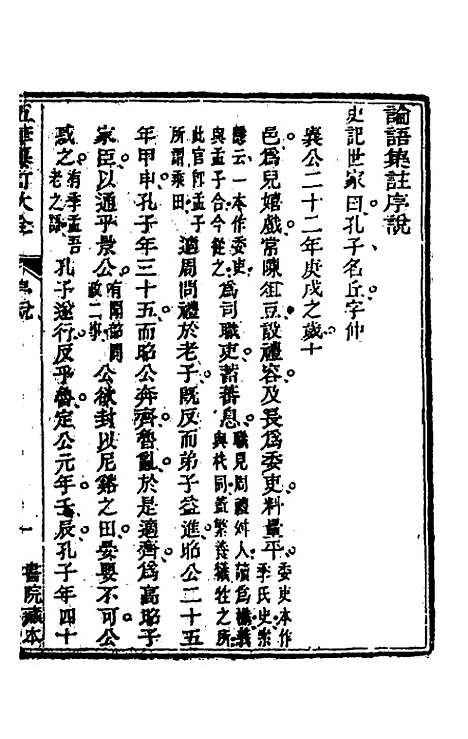 論語集註序說
史記世家曰孔子名丘字仲
襄公二十二年庚戌之歲十
邑爲兒嬉戲常陳俎豆設禮容及長爲委吏料量平委吏本作季氏史索
隱云一本作委吏與孟子合今從之爲司職吏畜蕃息職見周禮牛人讀爲樴義與杙同蓋繫養犧牲之所
此官卽孟子所謂乘田適周問禮於老子旣反而弟子益進昭公二十五
年甲申孔子年三十五而昭公奔齊魯亂於是適齊爲高昭子
家臣以通乎景公有聞韶問政二事公欲封以尼谿之田晏嬰不可公
惑之有季孟吾老之語孔子遂行反乎魯定公元年壬辰孔子年四十
五華纂訂大全
序說
一
書院藏本